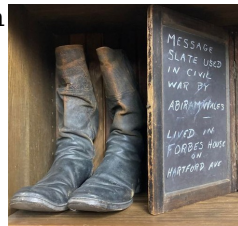 MESSAGE
SLATE USED
IN CIVIL
WAR BY
ABIRAM WALES
LIVED IN
FORBES HOUSE
ON
HARTFORD AVE